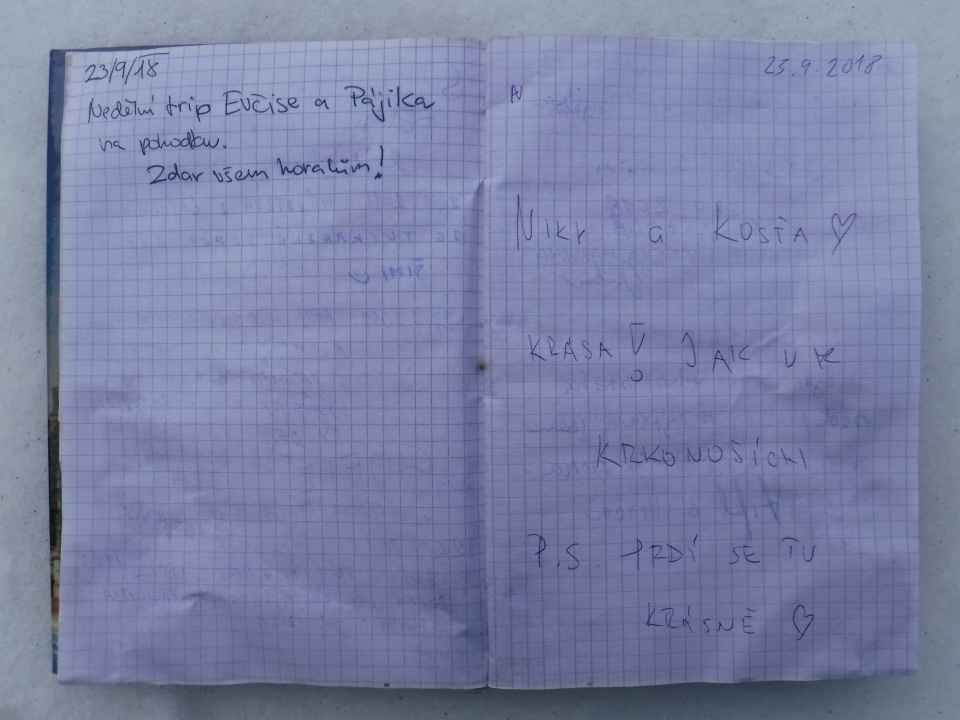 23/9/18
Nedělní trip Evčise a Pájika
na pohodku.
Zdar všem horalům!
25.9.2018
N
NIKY a KOSŤA ♡
KRÁSA! JAK V
KRKONOŠÍCH
P.S. PRDÍ SE TU
KRÁSNĚ ♡